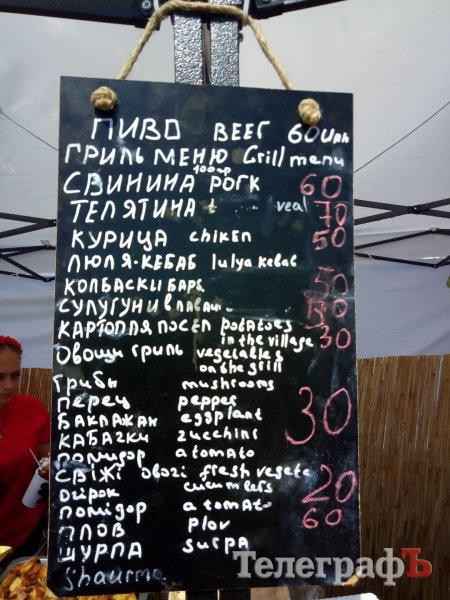 ПИВО BEEГ 60 Uah
ГРИЛЬ МЕНЮ Grill menu
100гр
СВИНИНА РОГК 60
ТЕЛЯТИНА veal 70
КУРИЦА chiкEn 50
ЛЮЛЯ-КЕБАБ lulya kebab
КОЛБАСКИ БАРБ 50
СУЛУГУНИ В ЛАВАШ
КАРТОПЛЯ ПОСЕЛ potatoes 30
in the village
ОВОЩИ ГРИЛЬ vegetables
on the grill
ГРИБЫ mushrooms
ПЕРЕЦ pepper
БАКЛАЖАН eggplant 30
КАБАЧКИ zucchini
ПОМИДОР a tomato
СВІЖІ ОВОЧІ fresh vegete
ОГІРОК cucumbers 20
ПОМІДОР a tomAto
ПЛОВ PLOV 60
ШУРПА SURPA
Shaurma
ТелеграфЪ